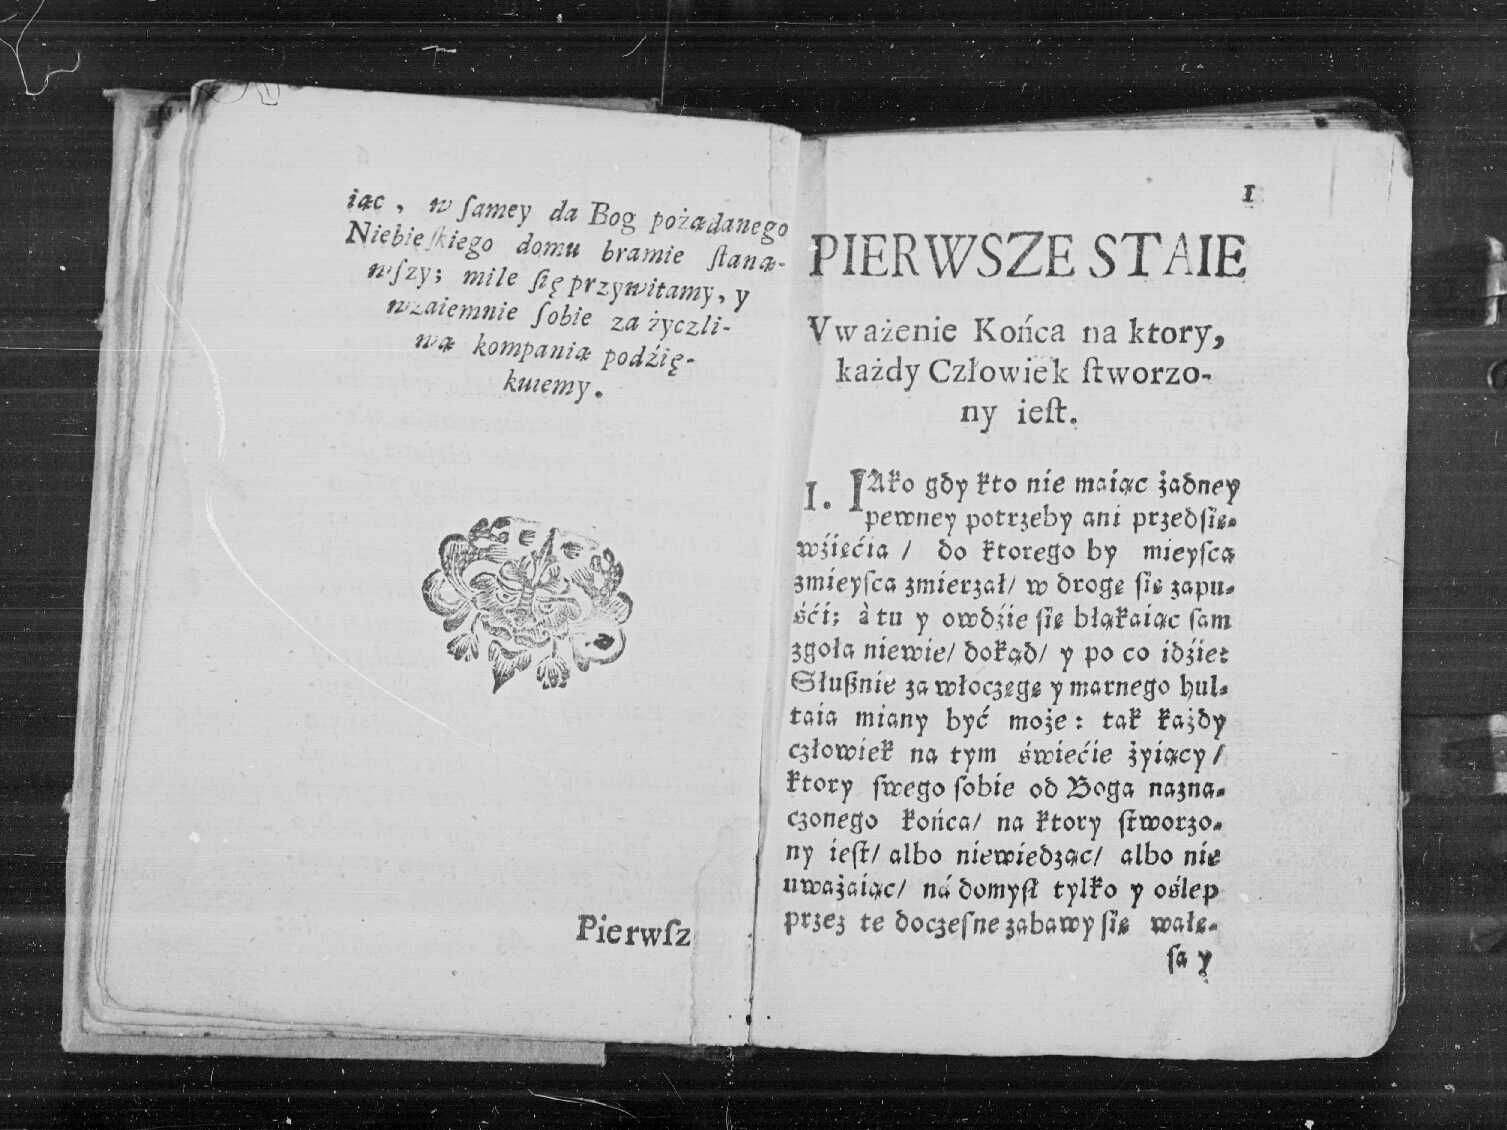 iąc, w ſamey da Bog pożądanego
Niebieſkiego domu bramie ſtaną-
wſzy; mile ſię przywitamy, y
wzaiemnie ſobie za życzli-
wą kompanią podźię-
kuiemy.
Pierwſz
1
PIERWSZE STAIE
Vważenie Końca na ktory,
każdy Człowiek ſtworzo-
ny ieſt.
1. IAko gdy kto nie maiąc żadney
pewney potrzeby ani przedſię-
wźięćia / do ktorego by mieyſca
zmieyſca zmierzał / w drogę ſię zapu-
śći; à tu y owdźie ſię błąkaiąc ſam
zgoła niewie / dokąd / y po co idźie:
Słuſznie za włoczęgę y marnego hul-
taia miany być może: tak każdy
człowiek na tym świećie żyiący /
ktory ſwego ſobie od Boga nazna-
czonego końca / na ktory ſtworzo-
ny ieſt / albo niewiedząc / albo nie
uważaiąc / ná domyſł tylko y oślep
przez te doczeſne zabawy ſię wałę-
ſa y